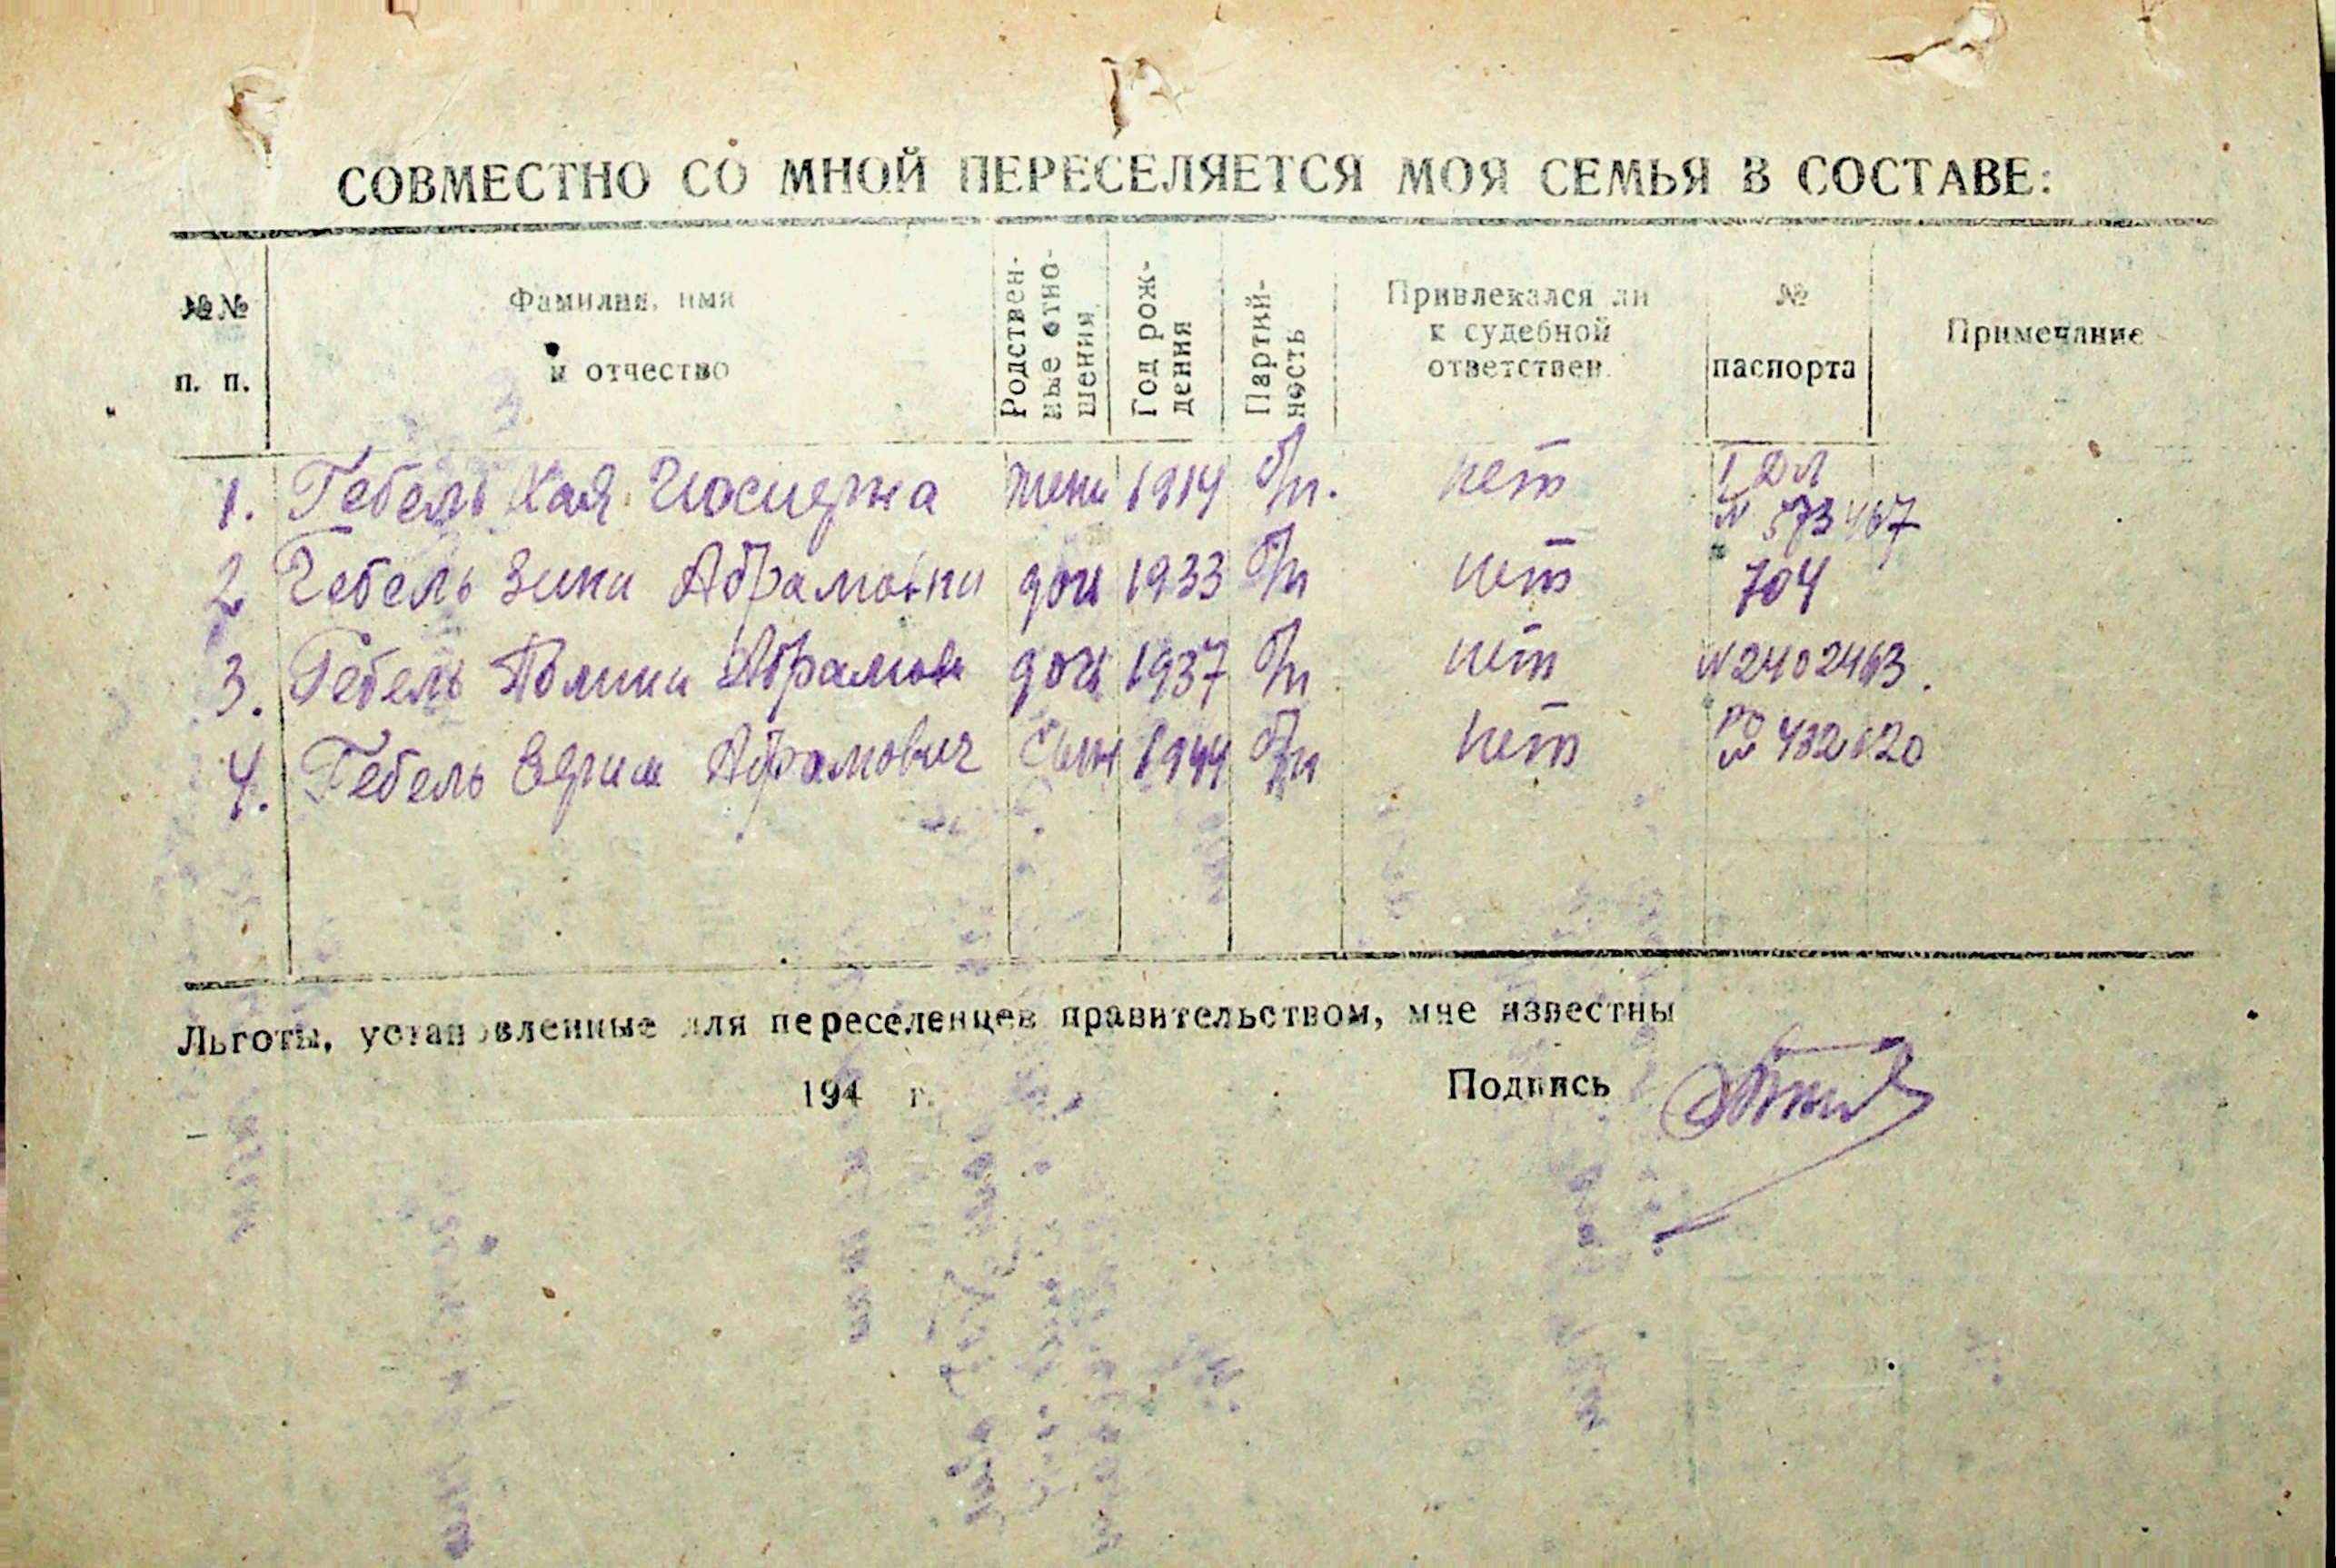 СОВМЕСТНО СО МНОЙ ПЕРЕСЕЛЯЕТСЯ МОЯ СЕМЬЯ В СОСТАВЕ:
№№ п. п.
Фамилия, имя и отчество
Родственные отношения
Год рождения
Партийность
Привлекался ли к судебной ответствен.
№ паспорта
Примечание
1. Гебель Хая жена 1914 б/п. нет I ДЛ
№ 573467
2 Гебель Зина доч 1933 б/п нет 704
3. Гебель Полина Абрамов доч 1937 б/п нет №2402463.
4. Гебель Абрамович сын 1944 б/п нет РО
№ 432120
Льготы, установленные для переселенцев правительством, мне известны
194 г. Подпись